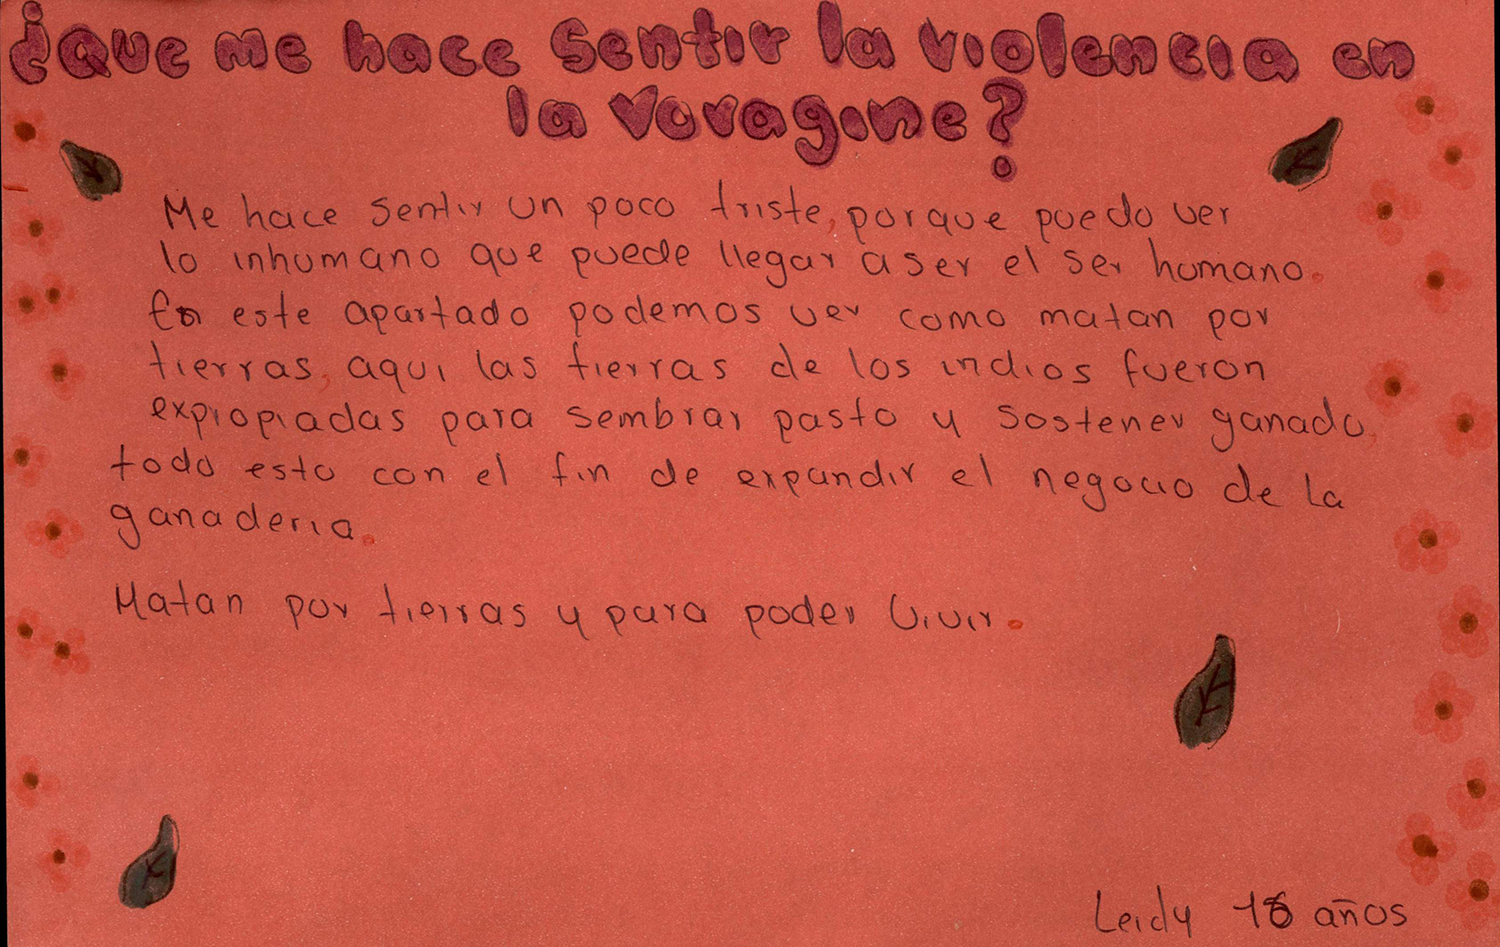 ¿que me hace sentir la violencia en
la voragine?
Me hace sentir un poco triste, porque puedo ver
lo inhumano que puede llegar a ser el ser humano.
En este apartado podemos ver como matan por
tierras, aqui las tierras de los indios fueron
expropiadas para sembrar pasto y sostener ganado,
todo esto con el fin de expandir el negocio de la
ganaderia.
Matan por tierras y para poder vivir.
Leidy años